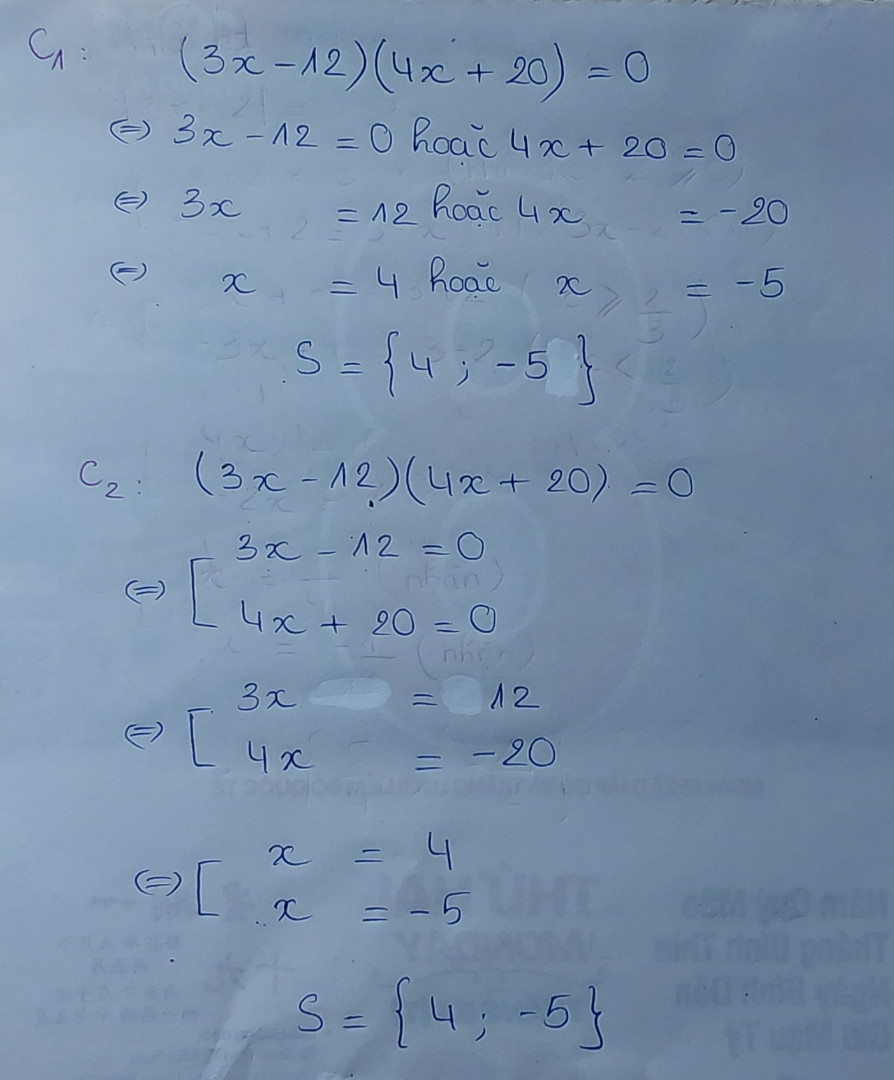 C₁: (3x - 12)(4x + 20) = 0
⇔ 3x - 12 = 0 hoặc 4x + 20 = 0
⇔ 3x = 12 hoặc 4x = -20
⇔ x = 4 hoặc x = -5
S = {4 ; -5}
C₂: (3x - 12)(4x + 20) = 0
⇔ [ 3x - 12 = 0
4x + 20 = 0
⇔ [ 3x = 12
4x = -20
⇔ [ x = 4
x = -5
S = {4 ; -5}